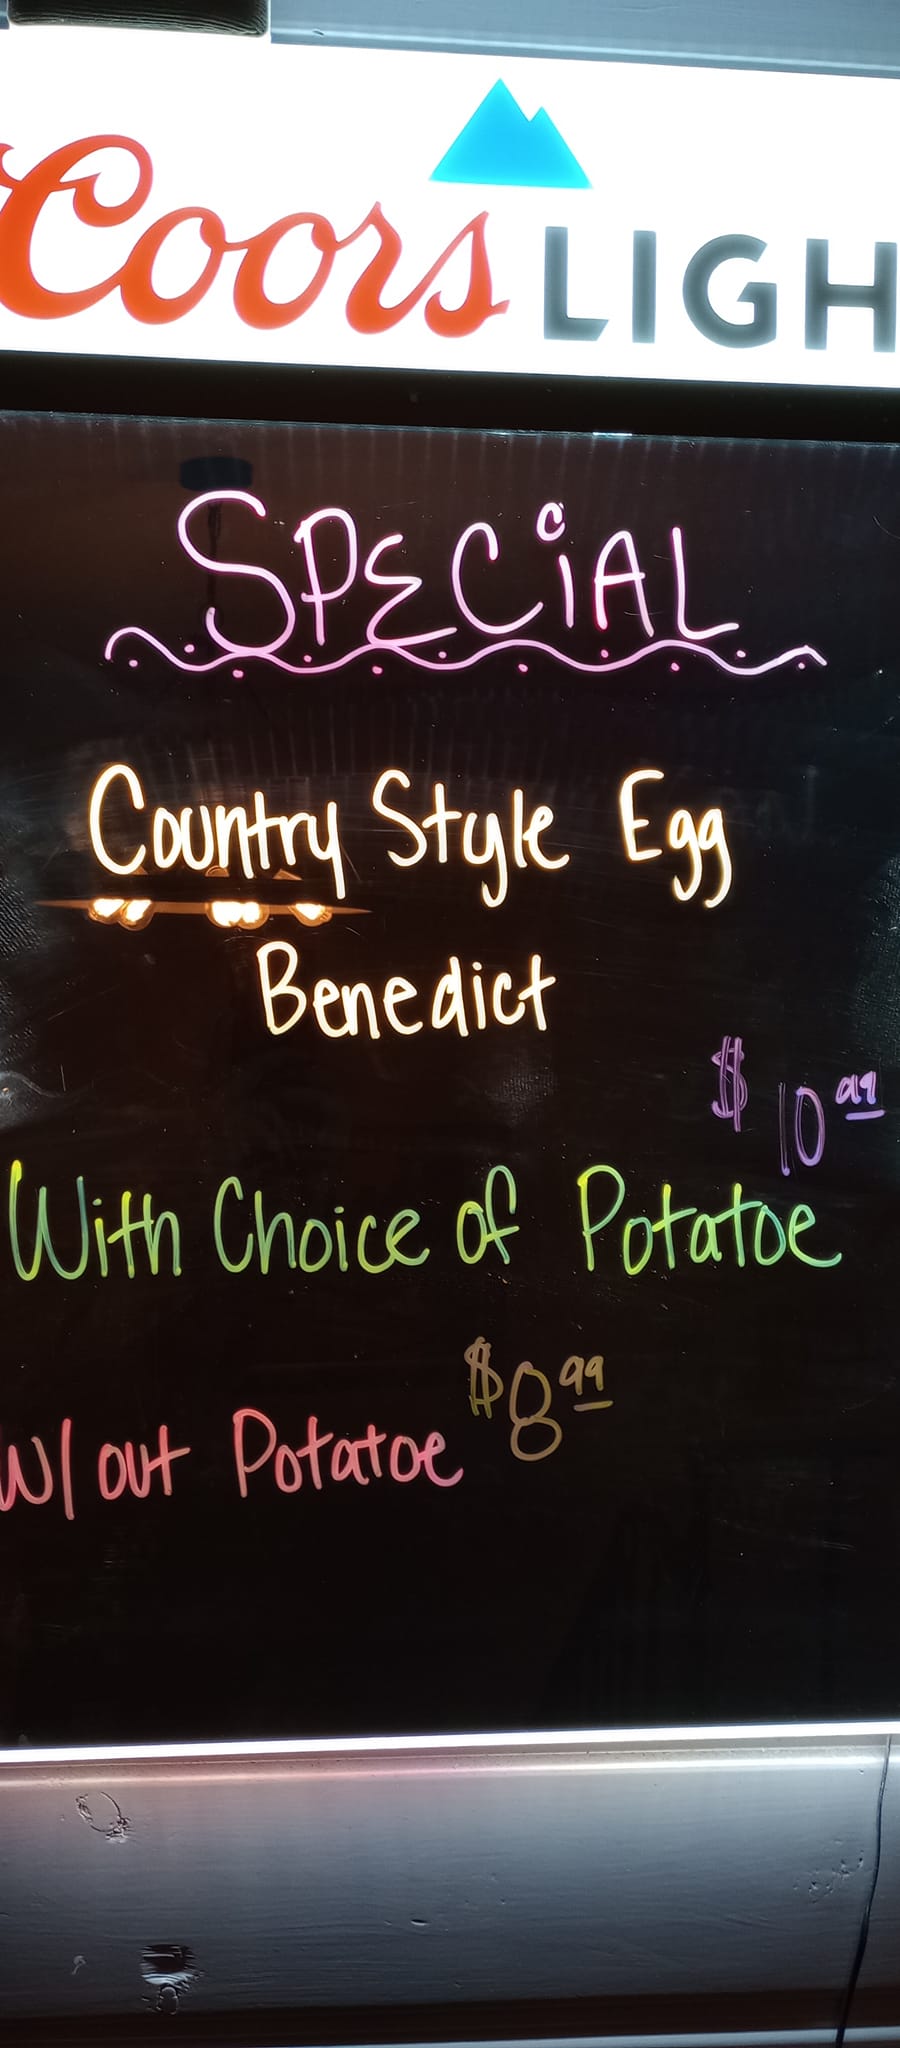 Coors LIGH
SPECiAL
Country Style Egg
Benedict
$ 10 99
With Choice of Potatoe
$8 99
W/out Potatoe